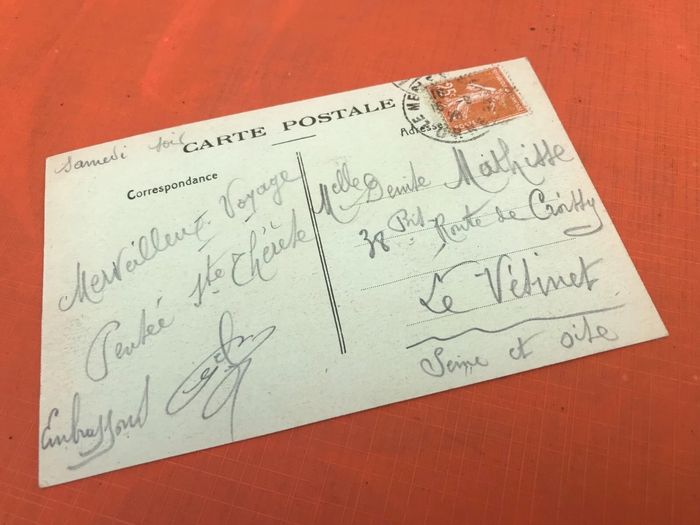 CARTE POSTALE
Samedi soir
Correspondance
Merveilleux Voyage
Pensée Ste Thérèse
Embrassons
Adresse
Melle Denise Mathisse
38 Bis Route de Croissy
Le Vésinet
Seine et Oise
25c